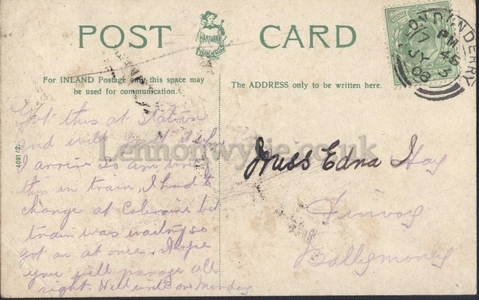 POST CARD
For INLAND Postage only this space may
be used for communication.
The ADDRESS only to be written here.
LONDONDERRY
PM
17 JY
08
Got this at Station
and will
I arrive
this in train. I had to
change at Coleraine but
train was waiting so
got on at once. Hope
you will manage all
right. Will write on Monday
Miss Edna Hay
Finvoy
Ballymoney
Lennonwylie.co.uk